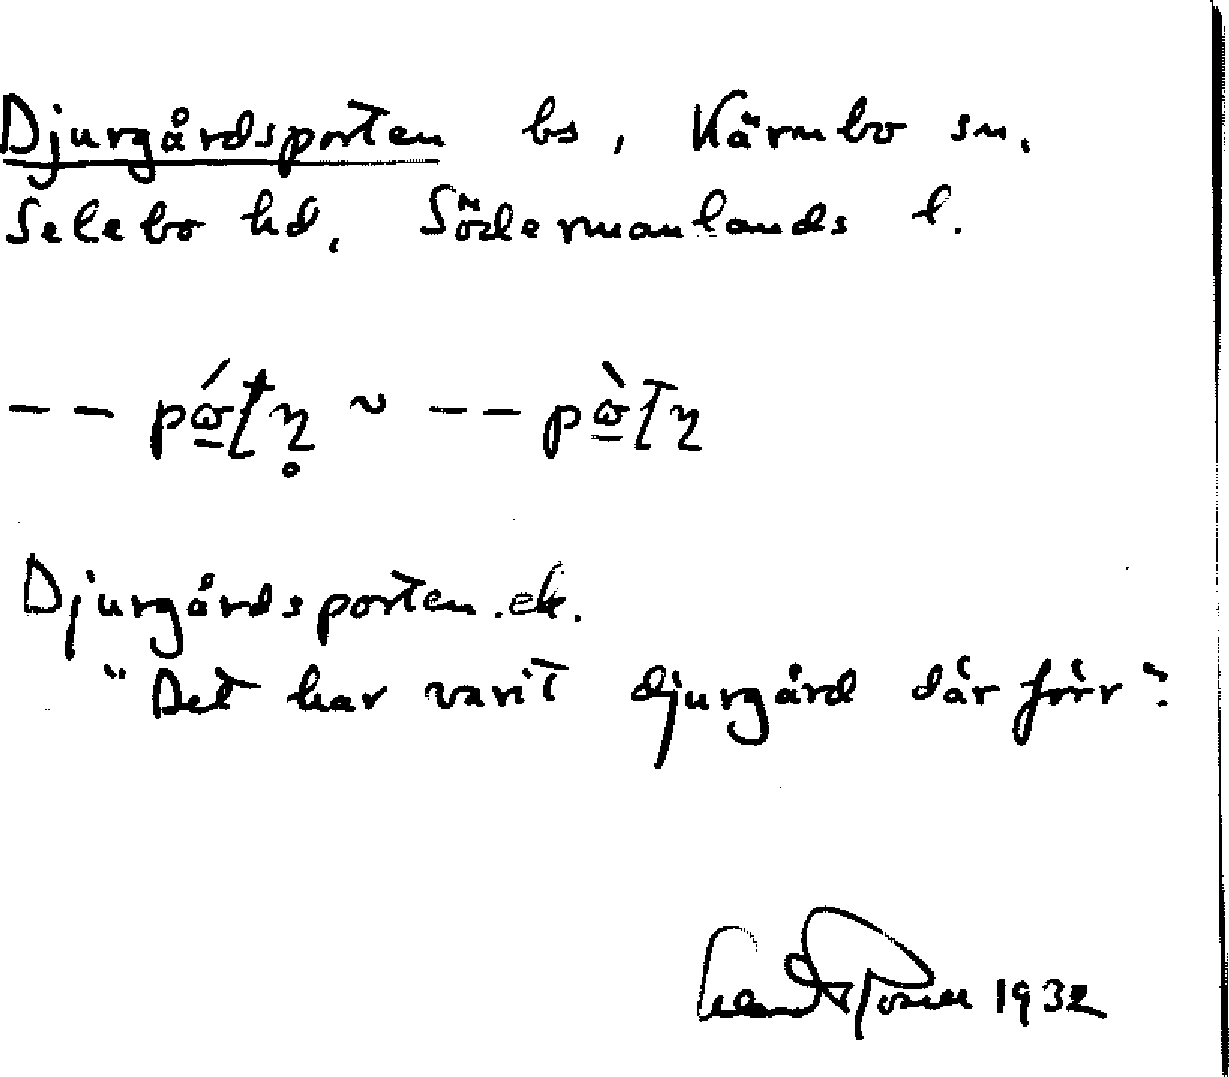 Djurgårdsporten bs, Kärnbo sn.
Selebo hd, Södermanlands l.
Djurgårdsporten. ek.
"Det har varit djurgård där förr".
1932